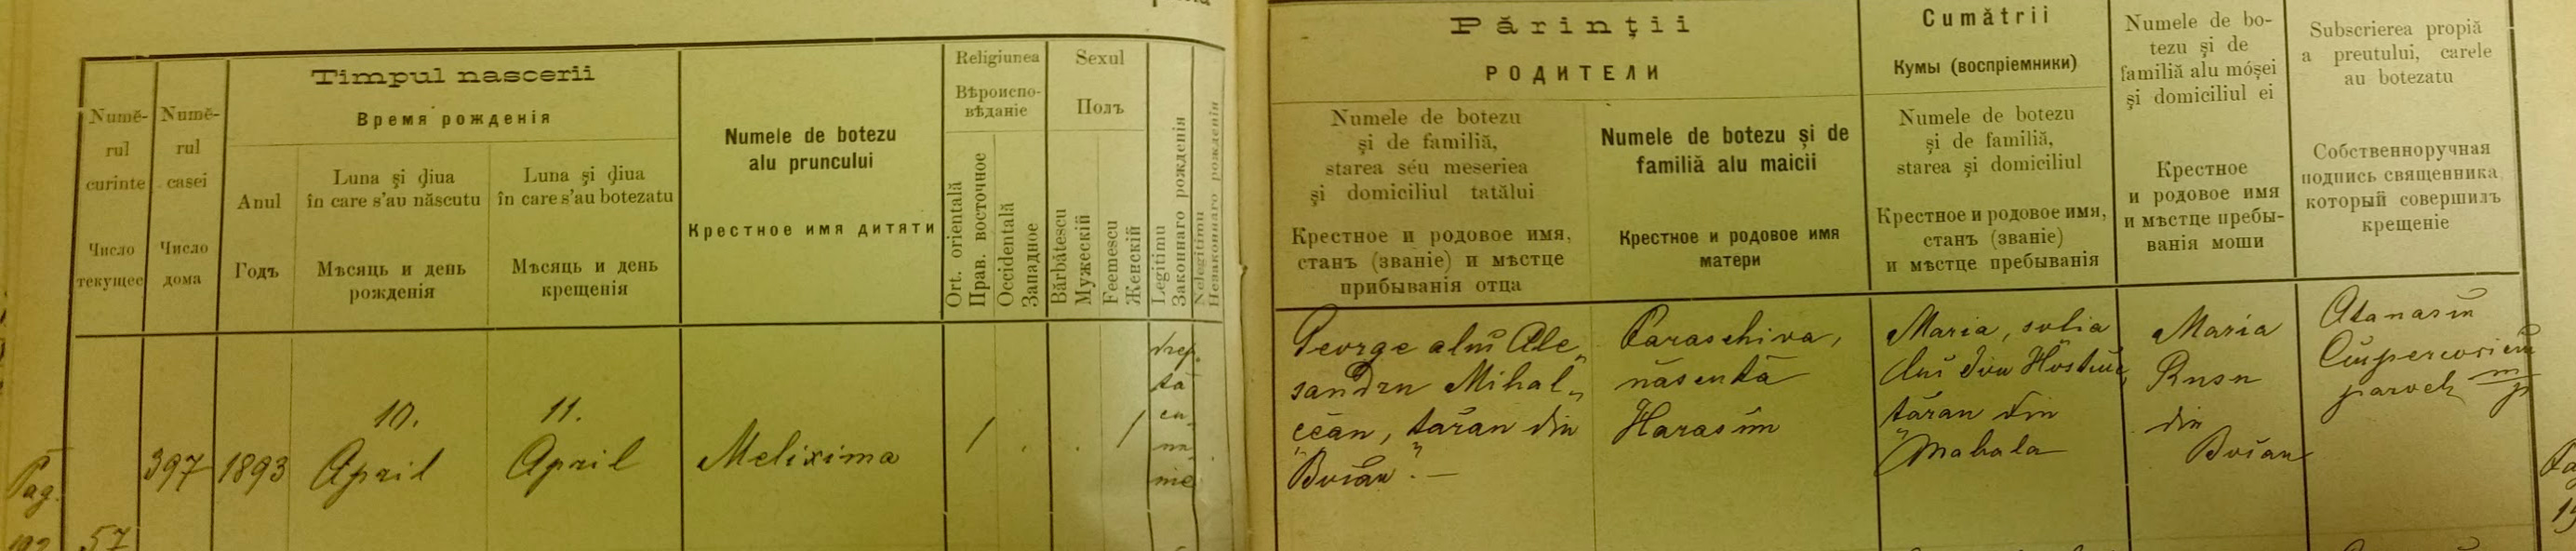 Timpul nascerii
Время рожденія
Numĕ-
rul
curinte
Число
текущее
Numĕ-
rul
casei
Число
дома
Anul
Годъ
Luna şi ḑiua
în care s'au născutu
Мѣсяць и день
рожденія
Luna şi ḑiua
în care s'au botezatu
Мѣсяць и день
крещенія
Numele de botezu
alu pruncului
Крестное имя дитяти
Religiunea
Вѣроиспо-
вѣданіе
Ort. orientală
Прав. восточное
Occidentală
Западное
Sexul
Полъ
Bărbătescu
Мужескій
Feemescu
Женскій
Legitimu
Законнаго рожденія
Nelegitimu
Незаконнаго рожденія
Părinţii
РОДИТЕЛИ
Numele de botezu
şi de familiă,
starea séu meseriea
şi domiciliul tatălui
Крестное и родовое имя,
станъ (званіе) и мѣстце
прибыванія отца
Numele de botezu şi de
familiă alu maicii
Крестное и родовое имя
матери
Cumătrii
Кумы (воспріемники)
Numele de botezu
şi de familiă,
starea şi domiciliul
Крестное и родовое имя,
станъ (званіе)
и мѣстце пребыванія
Numele de bo-
tezu şi de
familiă alu móşei
şi domiciliul ei
Крестное
и родовое имя
и мѣстце пребы-
ванія моши
Subscrierea propiă
a preutului, carele
au botezatu
Собственноручная
подпись священника,
который совершилъ
крещеніе
Pag.
57
397
1893
10.
April
11.
April
Melixima
/
.
.
/
drep
tă
cu
nu
nie
George alui Ale„
sandru Mihal„
cean, țăran din
Boian. —
Paraschiva,
născută
Harasim
Maria, soția
lui Ion
țăran din
Mahala
Maria
Rusu
din
Boian
Atanasiu
paroch m/p